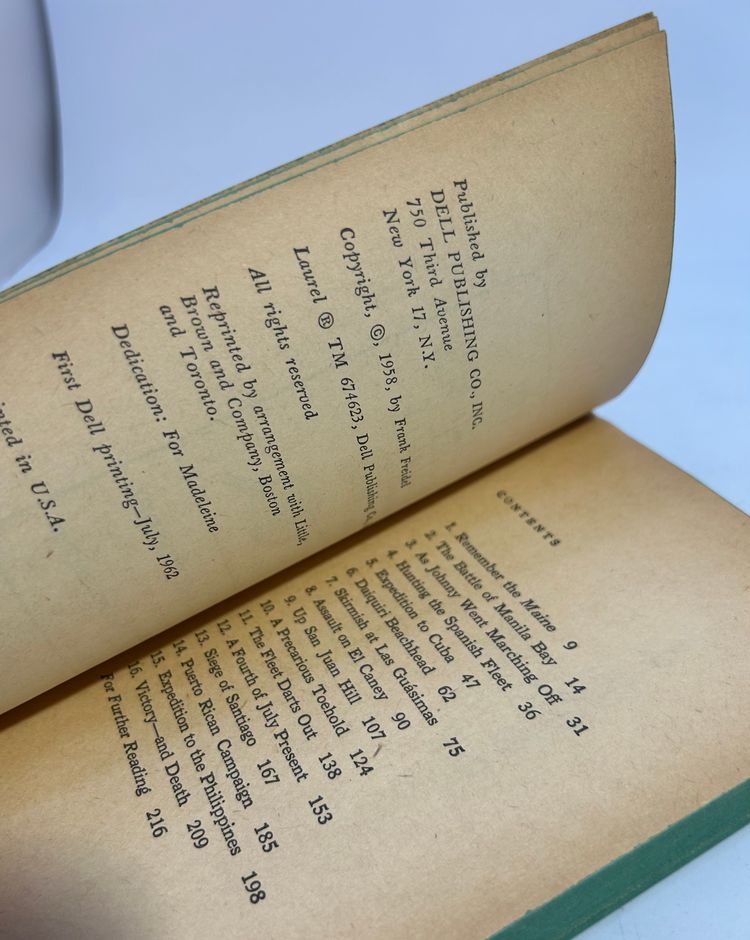 Published by
DELL PUBLISHING CO., INC.
750 Third Avenue
New York 17, N.Y.
Copyright, ©, 1958, by Frank Freidel
Laurel ® TM 674623, Dell Publishing Co
All rights reserved.
Reprinted by arrangement with Little,
Brown and Company, Boston
and Toronto.
Dedication: For Madeleine
First Dell printing—July, 1962
inted in U.S.A.
CONTENTS
1. Remember the Maine 9
2. The Battle of Manila Bay 14
3. As Johnny Went Marching Off 31
4. Hunting the Spanish Fleet 36
5. Expedition to Cuba 47
6. Daiquiri Beachhead 62
7. Skirmish at Las Guásimas 75
8. Assault on El Caney 90
9. Up San Juan Hill 107
10. A Precarious Toehold 124
11. The Fleet Darts Out 138
12. A Fourth of July Present 153
13. Siege of Santiago 167
14. Puerto Rican Campaign 185
15. Expedition to the Philippines 198
16. Victory—and Death 209
For Further Reading 216